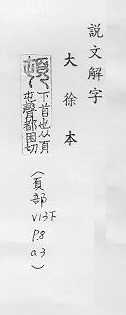 説文解字
大徐本
頓
下首也从頁
屯聲都困切
(頁部
V13下
P8
a3)